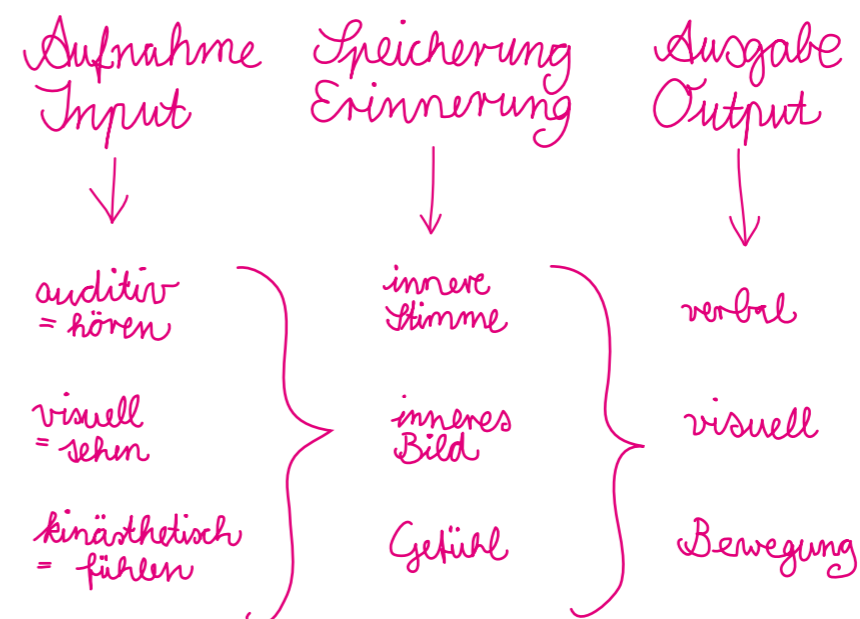 Aufnahme
Input
auditiv
= hören
visuell
= sehen
kinästhetisch
= fühlen
Speicherung
Erinnerung
innere
Stimme
inneres
Bild
Gefühl
Ausgabe
Output
verbal
visuell
Bewegung